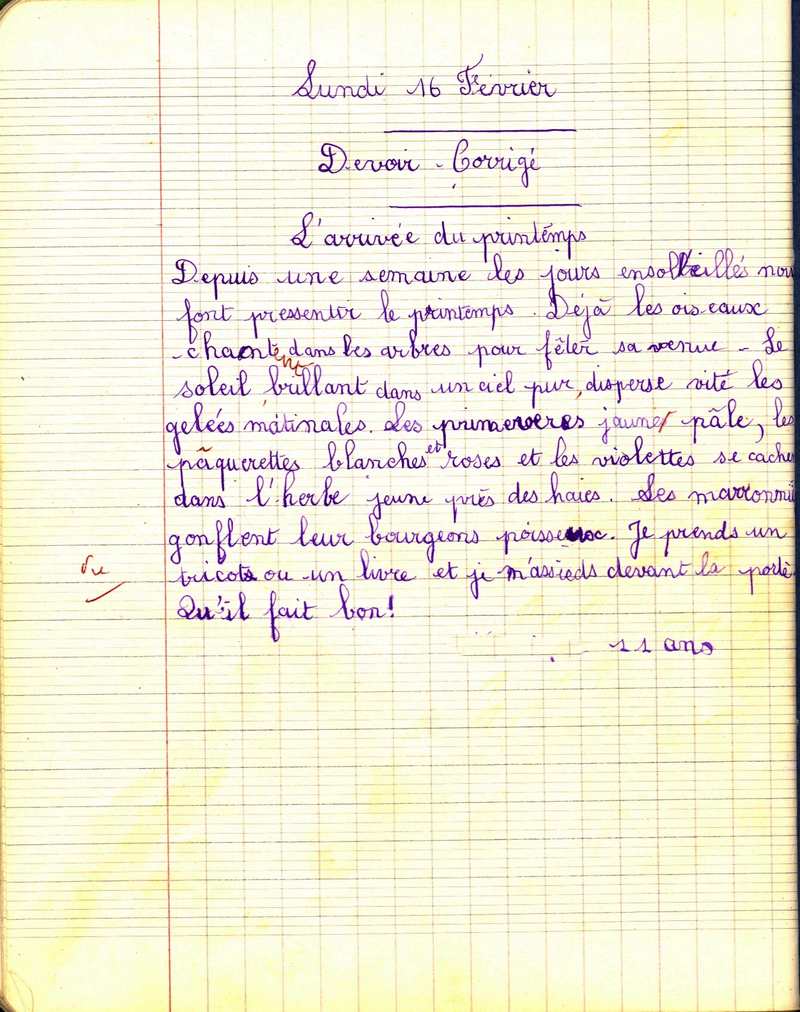 Lundi 16 Février
Devoir - Corrigé
L'arrivée du printemps
Depuis une semaine les jours ensoleillés nous
font pressentir le printemps. Déjà les oiseaux
chantent dans les arbres pour fêter sa venue - Le
soleil brillant dans un ciel pur, disperse vite les
gelées matinales. Les primevères jaune pâle, les
pâquerettes blanches et roses et les violettes se cachent
dans l'herbe jeune près des haies. Les marronniers
gonflent leur bourgeons poisseux. Je prends un
Vu
tricot ou un livre et je m'assieds devant la porte
Qu'il fait bon!
11 ans